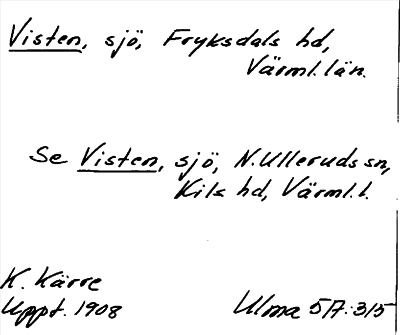 Visten, sjö, Fryksdals hd,
Värml. län.
Se Visten, sjö, N. Ulleruds sn,
Kils hd, Värml. l.
K. Kärre
Uppt. 1908
Ulma 57:315